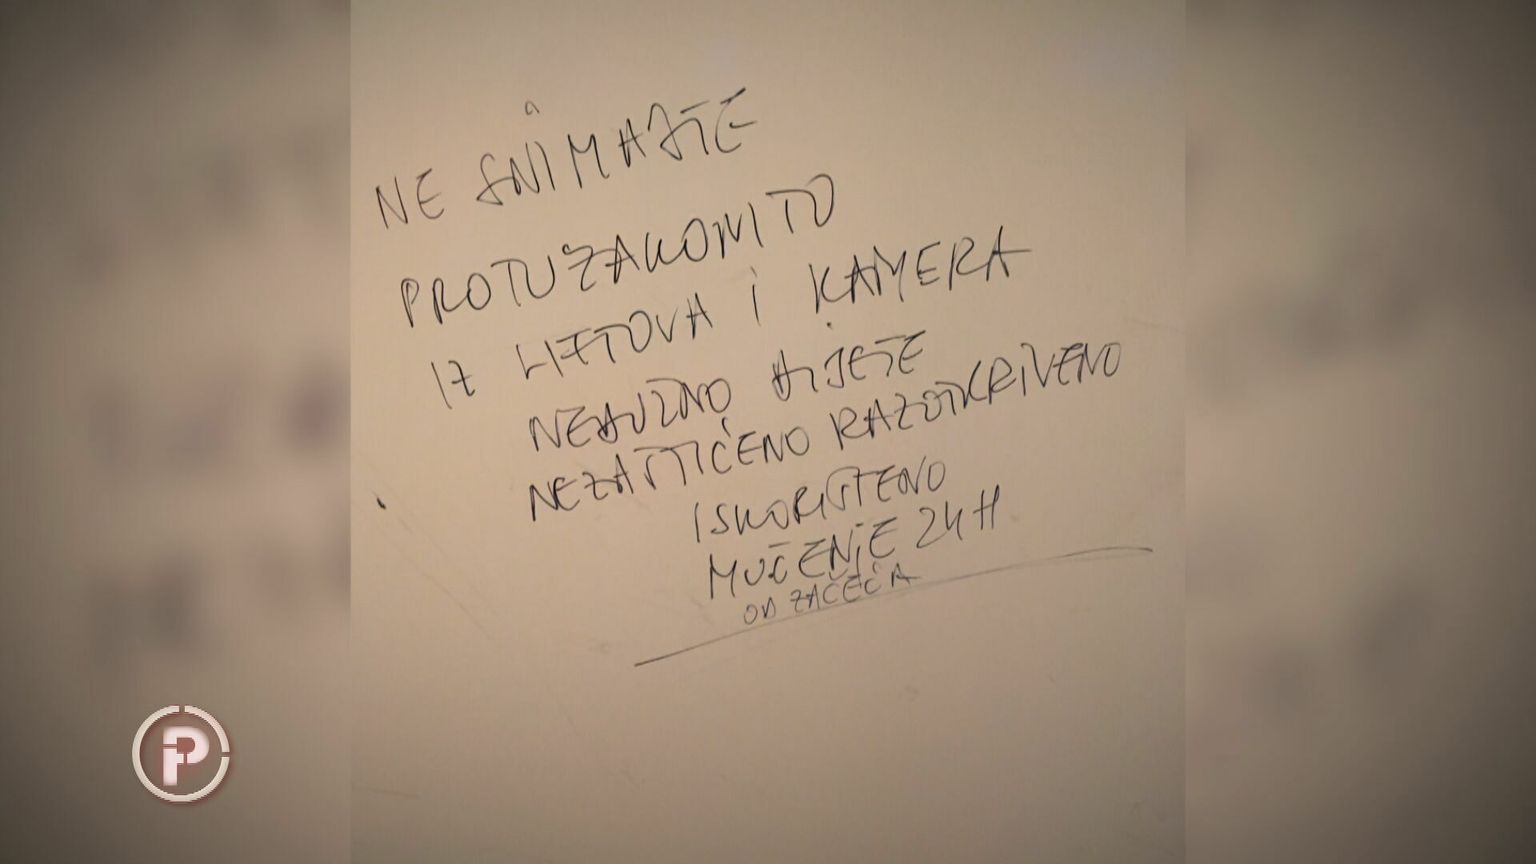 NE SNIMAJTE
PROTUZAKONITO
IZ LIFTOVA I KAMERA
NEDUŽNO DIJETE
NEZAŠTIĆENO RAZOTKRIVENO
ISKORIŠTENO
MUČENJE 24H
OD ZAČEĆA
P